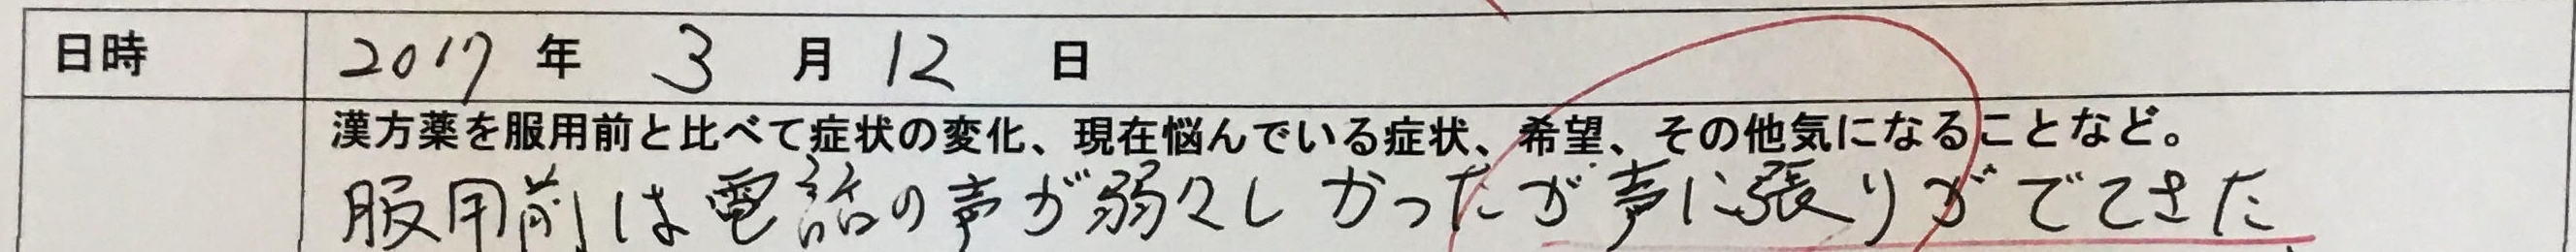 日時 2017 年 3 月 12 日
漢方薬を服用前と比べて症状の変化、現在悩んでいる症状、希望、その他気になることなど。
服用前は電話の声が弱々しかったが声に張りがでてきた